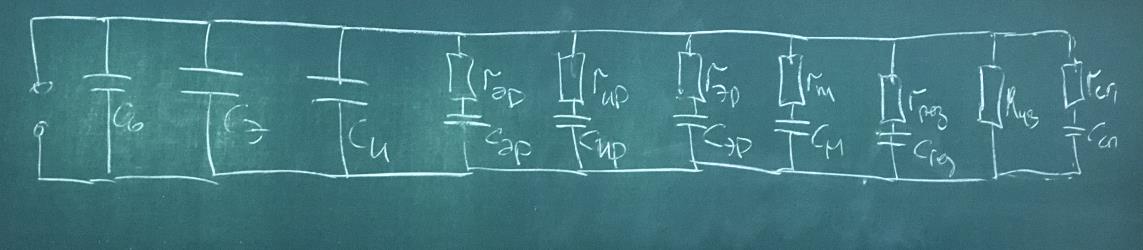 C₀
Cэ
Cи
rэр
Cэр
rир
Cир
rэр
Cэр
rм
Cм
rрез
Cрез
Rиз
rсп
Cсп